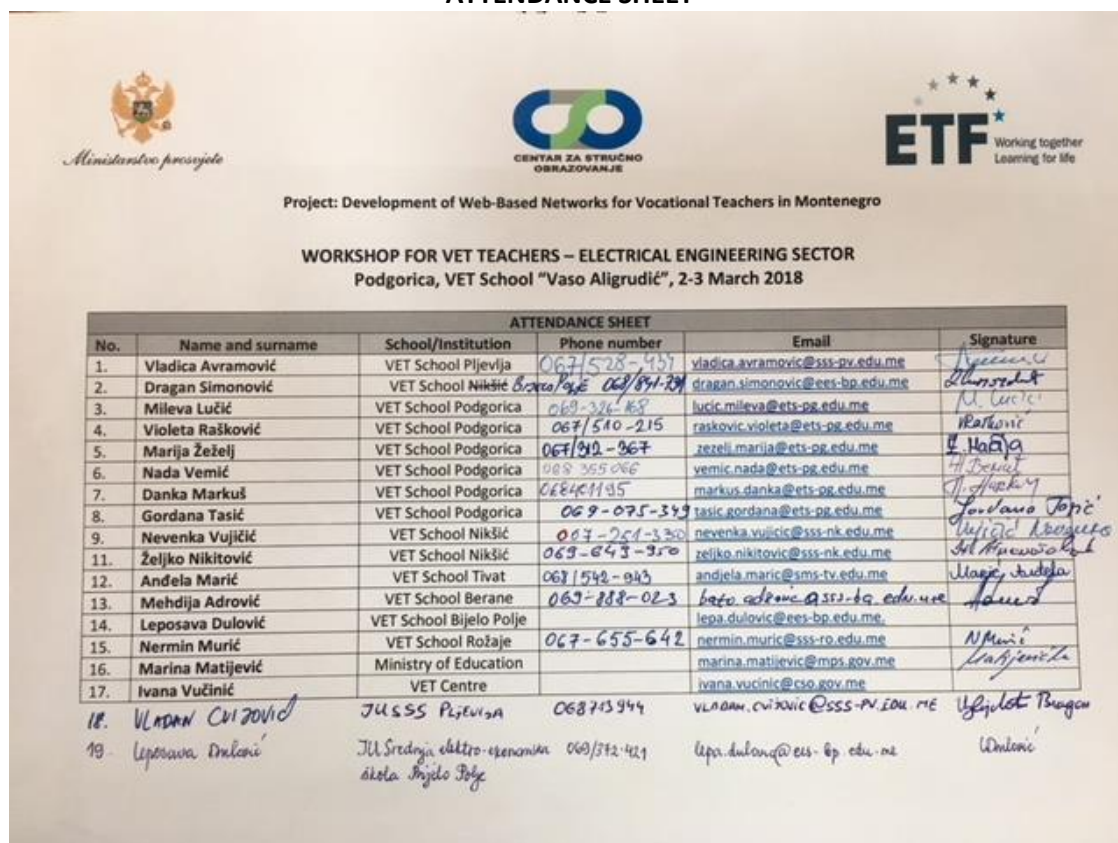 ATTENDANCE SHEET
Ministarstvo prosvjete
CENTAR ZA STRUČNO
OBRAZOVANJE
ETF Working together
Learning for life
Project: Development of Web-Based Networks for Vocational Teachers in Montenegro
WORKSHOP FOR VET TEACHERS – ELECTRICAL ENGINEERING SECTOR
Podgorica, VET School "Vaso Aligrudić", 2-3 March 2018
ATTENDANCE SHEET
No. Name and surname School/Institution Phone number Email Signature
1. Vladica Avramović VET School Pljevlja 067/528-437 vladica.avramovic@sss-pv.edu.me
2. Dragan Simonović VET School Nikšić dragan.simonovic@ees-bp.edu.me
3. Mileva Lučić VET School Podgorica 069-326-168 lucic.mileva@ets-pg.edu.me M. Lučić
4. Violeta Rašković VET School Podgorica 067/510-215 raskovic.violeta@ets-pg.edu.me VRašković
5. Marija Žeželj VET School Podgorica 067/312-367 zezelj.marija@ets-pg.edu.me
6. Nada Vemić VET School Podgorica 068 355 066 vemic.nada@ets-pg.edu.me
7. Danka Markuš VET School Podgorica 068401195 markus.danka@ets-pg.edu.me
8. Gordana Tasić VET School Podgorica 069-075-349 tasic.gordana@ets-pg.edu.me
9. Nevenka Vujičić VET School Nikšić 067-251-330 nevenka.vujicic@sss-nk.edu.me
11. Željko Nikitović VET School Nikšić 069-643-950 zeljko.nikitovic@sss-nk.edu.me
12. Anđela Marić VET School Tivat 068/542-943 andjela.maric@sms-tv.edu.me
13. Mehdija Adrović VET School Berane 069-888-023 bato.adrovic@sss-ba.edu.me
14. Leposava Dulović VET School Bijelo Polje lepa.dulovic@ees-bp.edu.me.
15. Nermin Murić VET School Rožaje 067-655-642 nermin.muric@sss-ro.edu.me NMurić
16. Marina Matijević Ministry of Education marina.matijevic@mps.gov.me
17. Ivana Vučinić VET Centre ivana.vucinic@cso.gov.me
18. VLADAN CVIJOVIĆ JU SSS PLJEVLJA 068713944 VLADAN.CVIJOVIC@SSS-PV.EDU.ME
19. Leposava Dulović JU Srednja elektro-ekonomska 069/372-421
škola Bijelo Polje